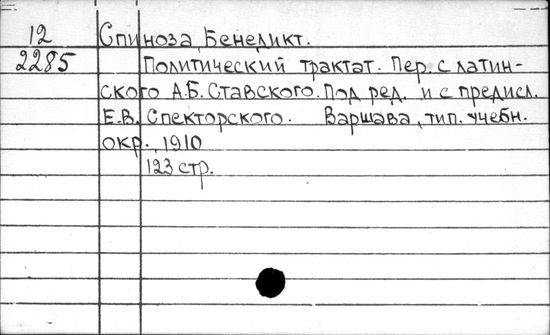 12 Спиноза, Бенедикт.
2285 Политический трактат. Пер. с латин-
ского А.Б. Ставского. Под ред. и с предисл.
Е.В. Спекторского. Варшава, тип. учебн.
окр., 1910
123 стр.